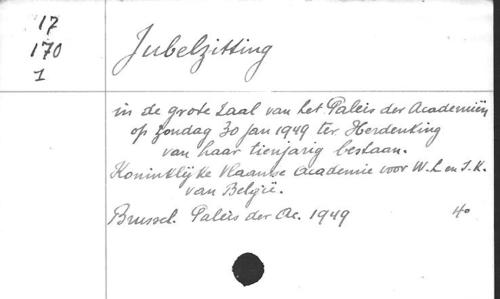 17
170
1
Jubelzitting
in de grote zaal van het Paleis der Academiën
op zondag 30 jan 1949 ter Herdenking
van haar tienjarig bestaan.
Koninklijke Vlaamse Academie voor W. L en S. K.
van België.
Brussel. Paleis der Ac. 1949 4o